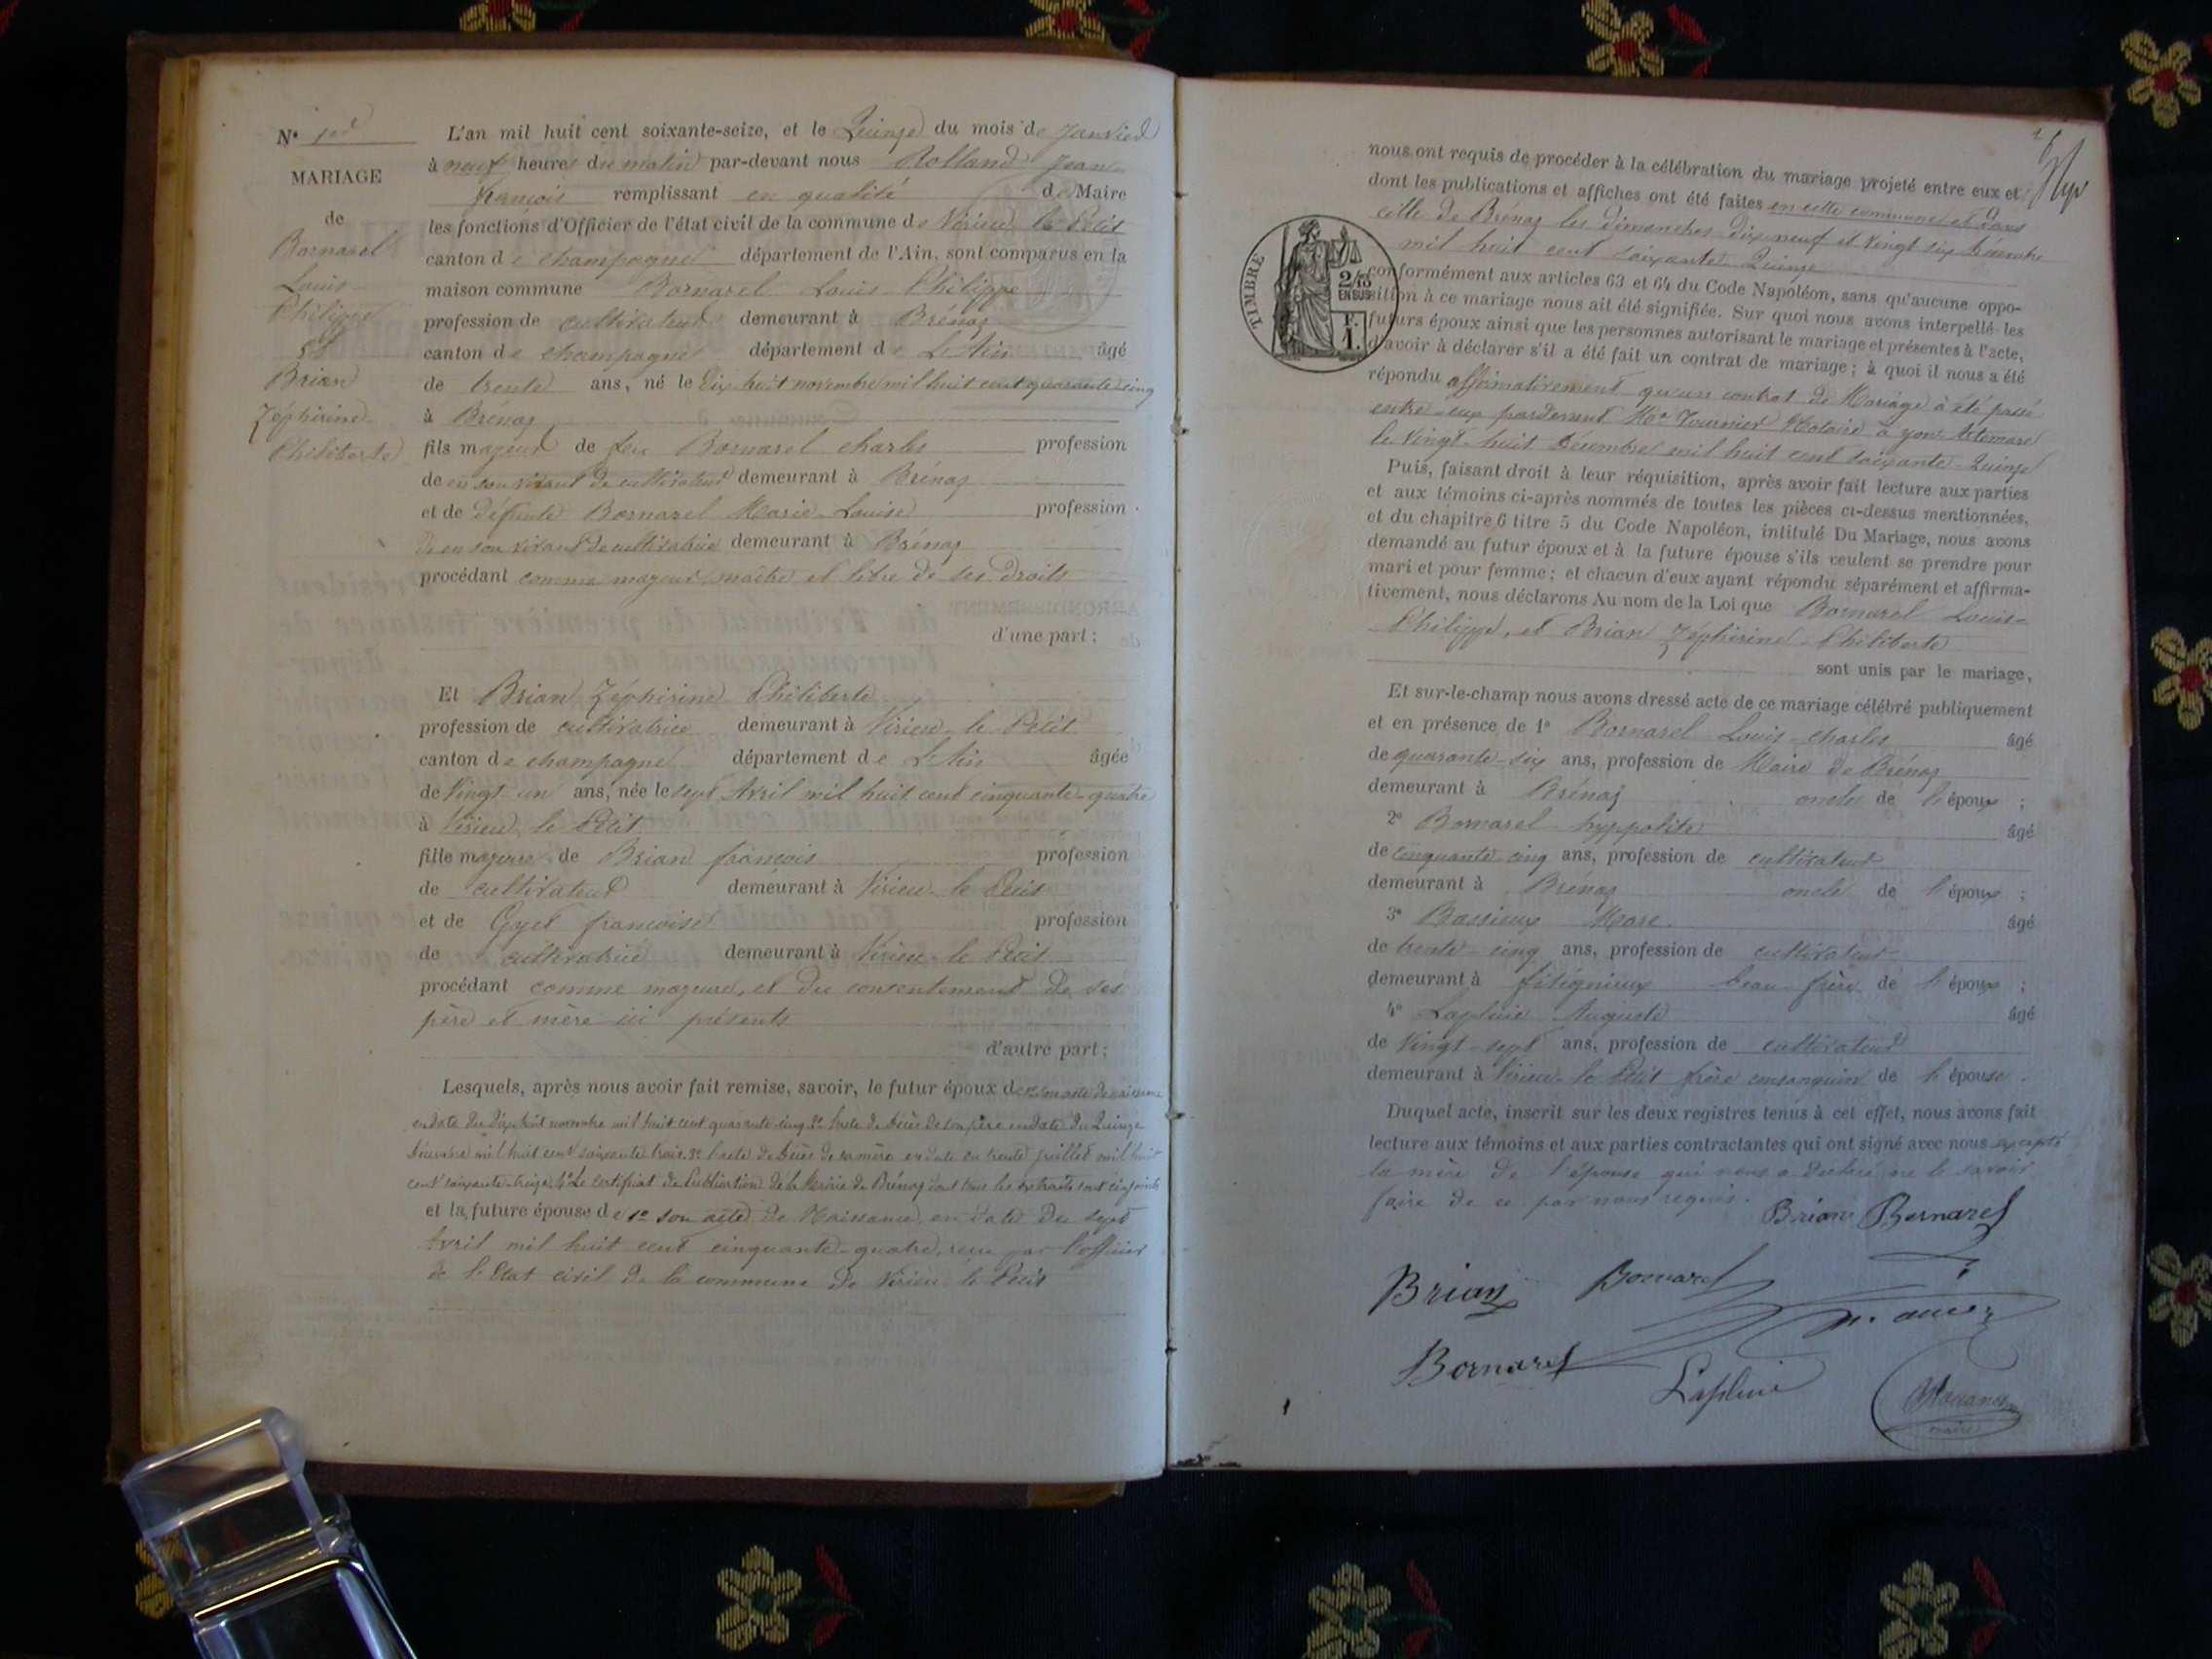 N° 1er
MARIAGE
de
Bornarel
Louis-
Philippe
et
Brian
Zéphirine
Philiberte
L'an mil huit cent soixante-seize, et le Quinze du mois de Janvier
à neuf heures du matin par-devant nous Rolland Jean
François remplissant en qualité de Maire
les fonctions d'Officier de l'état civil de la commune de Virieu le Petit
canton de champagne département de l'Ain, sont comparus en la
maison commune Bornarel Louis Philippe
profession de cultivateur demeurant à Brénaz
canton de champagne département de L'Ain âgé
de trente ans, né le Dix huit novembre mil huit cent quarante cinq
à Brenaz
fils majeur de feu Bornarel charles profession
de en son vivant de cultivateur demeurant à Brénaz
et de défunte Bornarel Marie Louise profession
de en son vivant de cultivatrice demeurant à Brénaz
procédant comme majeur, maître et libre de ses droits
d'une part;
Et Brian Zéphirine Philiberte
profession de cultivatrice demeurant à Virieu le Petit
canton de champagne département de L'Ain âgée
de Vingt un ans, née le sept Avril mil huit cent cinquante quatre
à Virieu le Petit
fille majeure de Brian françois profession
de cultivateur demeurant à Virieu le Petit
et de Gyet françoise profession
de cultivatrice demeurant à Virieu le Petit
procédant comme majeure, et du consentement de ses
père et mère ici présents
d'autre part;
Lesquels, après nous avoir fait remise, savoir, le futur époux de 1° son acte de naissance
en date du dix huit novembre mil huit cent quarante cinq 2° l'acte de décès de son père en date du Quinze
décembre mil huit cent soixante trois 3° l'acte de décès de sa mère en date du trente juillet mil huit
cent soixante treize 4° Le certificat de Publication de la Mairie de Brénaz dont tous les extraits sont ci joints
et la future épouse de 1° son acte de Naissance en date du sept
Avril mil huit cent cinquante quatre, reçu par l'officier
de l'Etat civil de la commune de Virieu le Petit
nous ont requis de procéder à la célébration du mariage projeté entre eux et
dont les publications et affiches ont été faites en cette commune et dans
celle de Brénaz les dimanches Dix neuf et Vingt six Décembre
mil huit cent soixante Quinze
conformément aux articles 63 et 64 du Code Napoléon, sans qu'aucune oppo-
sition à ce mariage nous ait été signifiée. Sur quoi nous avons interpellé les
futurs époux ainsi que les personnes autorisant le mariage et présentes à l'acte,
d'avoir à déclarer s'il a été fait un contrat de mariage; à quoi il nous a été
répondu affirmativement qu'un contrat de Mariage a été passé
entre eux pardevant Me Tournier Notaire à yon Artemare
le Vingt huit Décembre mil huit cent soixante Quinze
Puis, faisant droit à leur réquisition, après avoir fait lecture aux parties
et aux témoins ci-après nommés de toutes les pièces ci-dessus mentionnées,
et du chapitre 6 titre 5 du Code Napoléon, intitulé Du Mariage, nous avons
demandé au futur époux et à la future épouse s'ils veulent se prendre pour
mari et pour femme; et chacun d'eux ayant répondu séparément et affirma-
tivement, nous déclarons Au nom de la Loi que Bornarel Louis
Philippe, et Brian Zéphirine Philiberte
sont unis par le mariage,
Et sur-le-champ nous avons dressé acte de ce mariage célébré publiquement
et en présence de 1° Bornarel Louis charles âgé
de quarante six ans, profession de Maire de Brénaz
demeurant à Brénaz oncle de l'époux ;
2° Bornarel hyppolite âgé
de cinquante cinq ans, profession de cultivateur
demeurant à Brénaz oncle de l'époux ;
3° Bassieux Marc âgé
de trente cinq ans, profession de cultivateur
demeurant à fitignieux beau frère de l'époux ;
4° Lapluie Auguste âgé
de Vingt sept ans, profession de cultivateur
demeurant à Virieu le Petit frère consanguin de l'épouse.
Duquel acte, inscrit sur les deux registres tenus à cet effet, nous avons fait
lecture aux témoins et aux parties contractantes qui ont signé avec nous excepté
la mère de l'épouse qui nous a déclaré ne le savoir
faire de ce par nous requis.
Brian Bornarel
Brian Bornarel
Bornarel
Lapluie
maire
TIMBRE
2/10
EN SUS
F.
1.